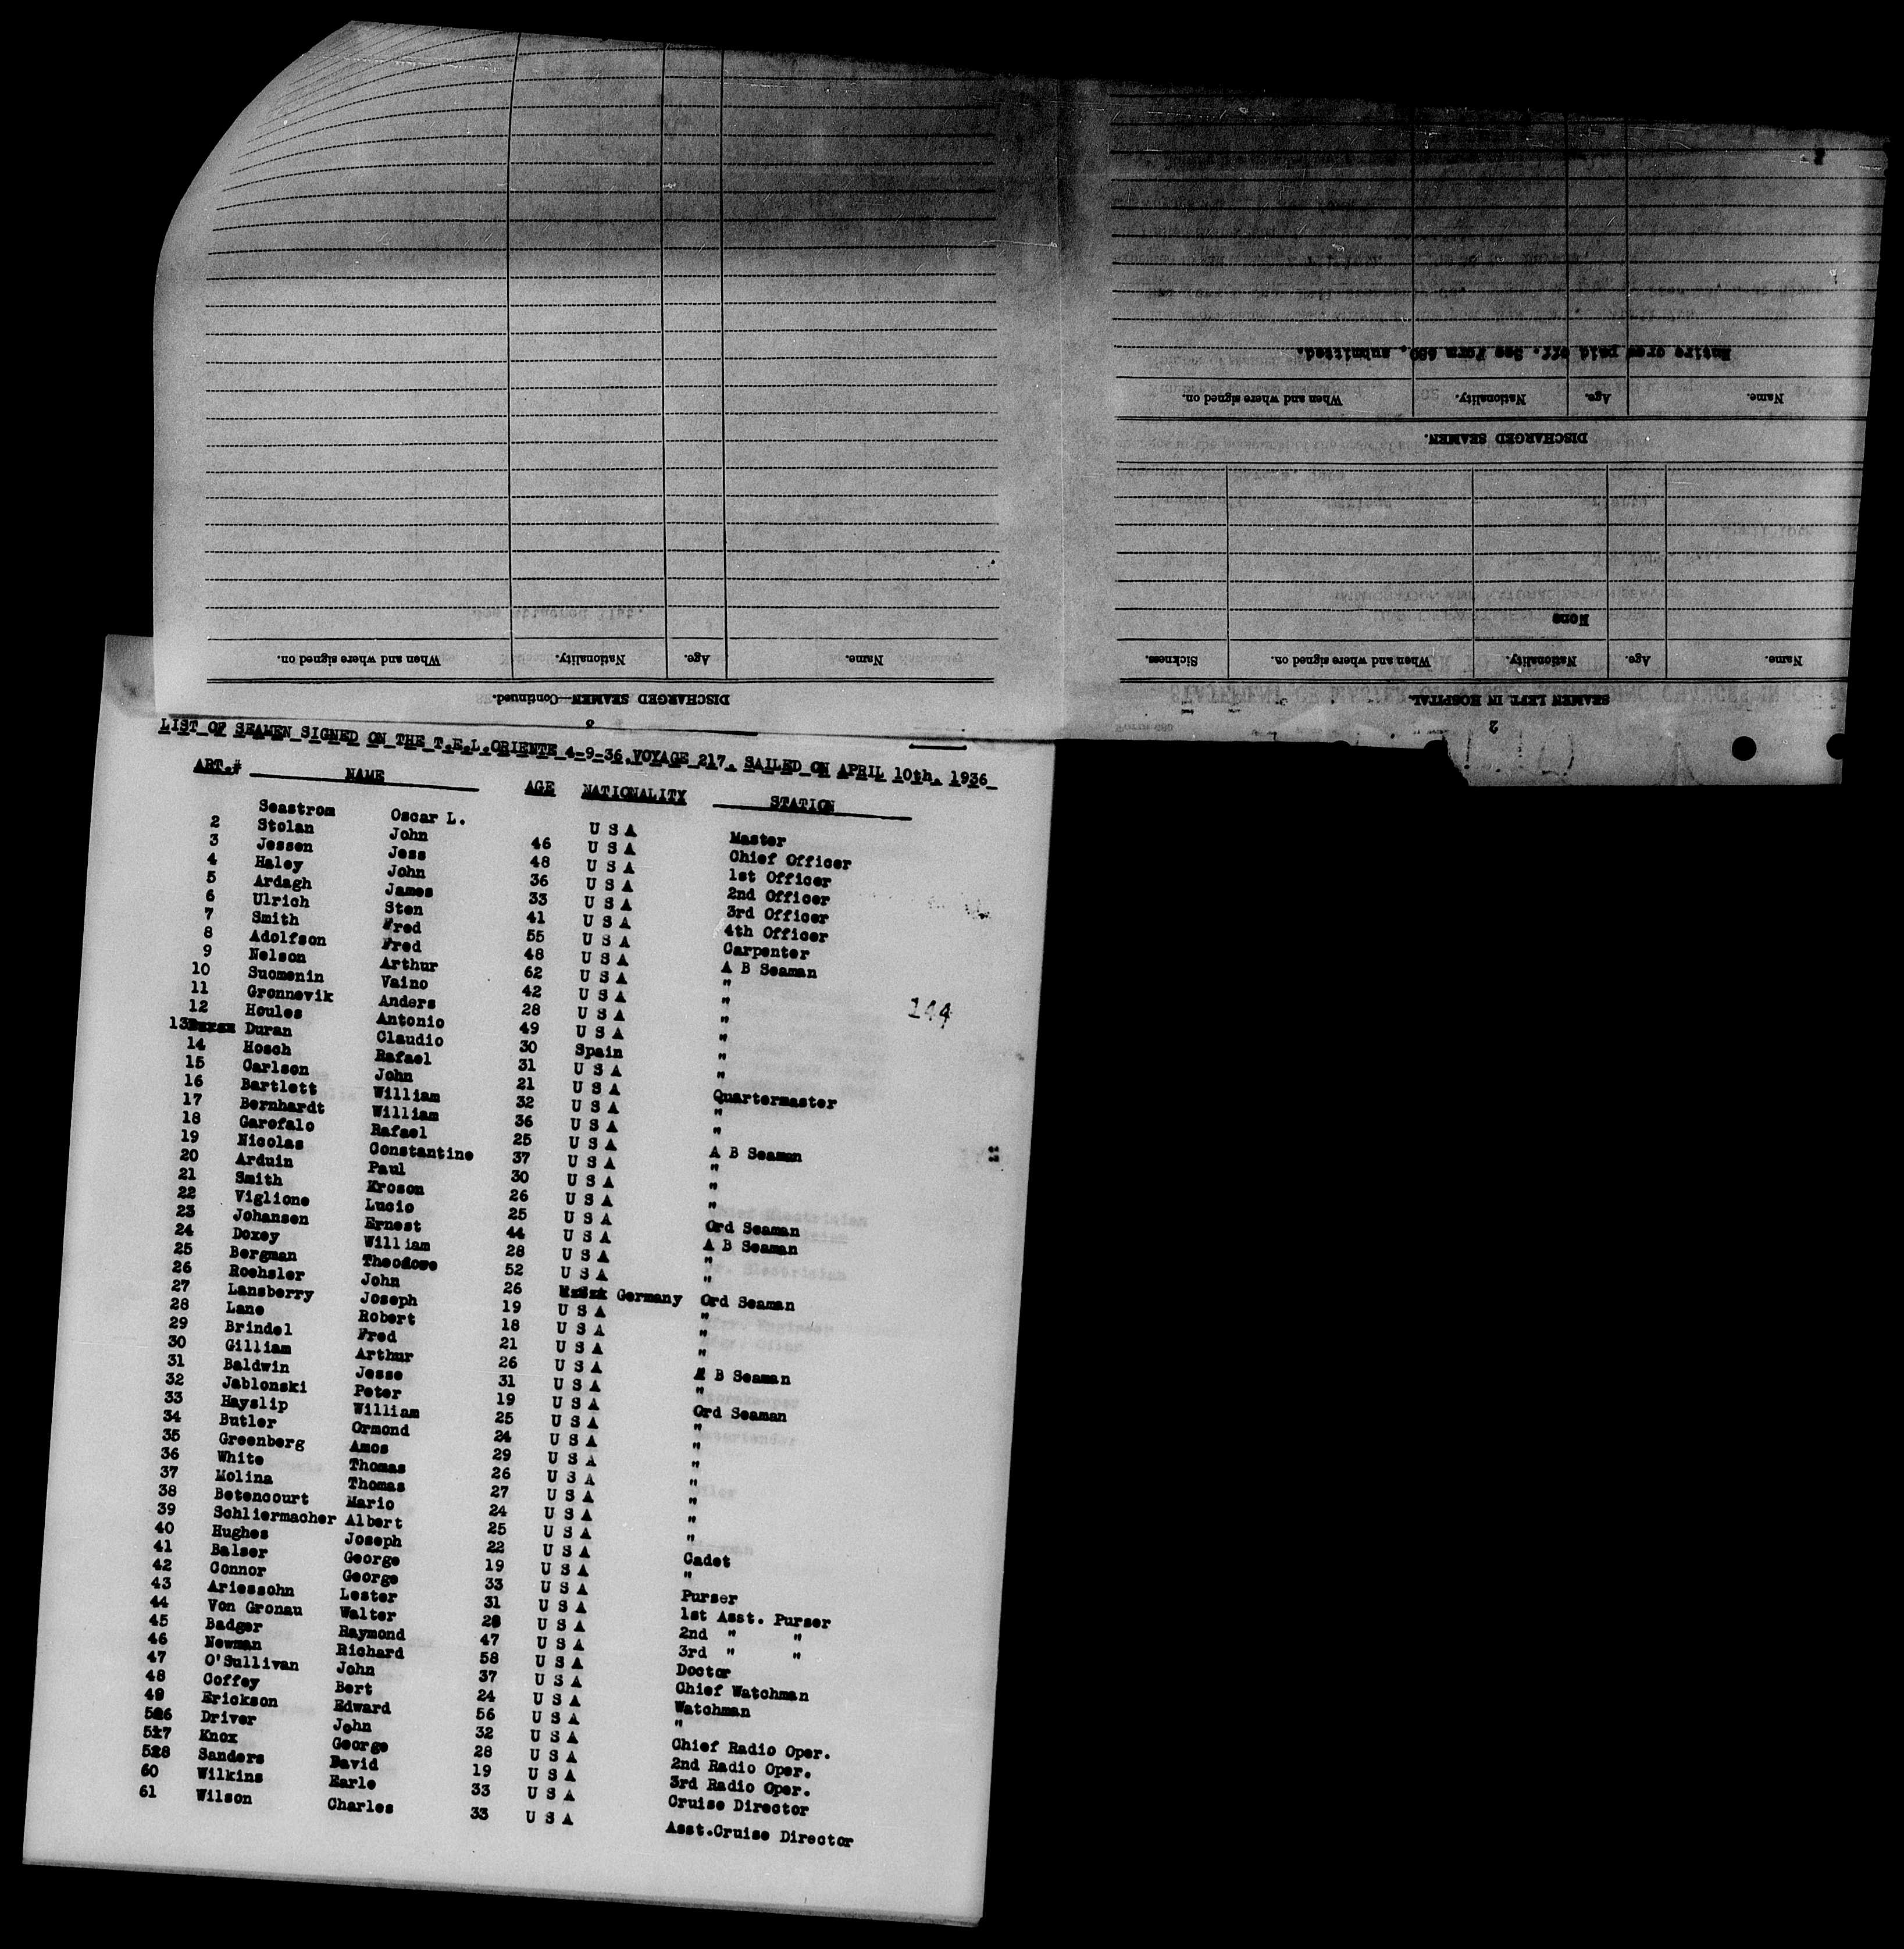 2
SEAMEN LEFT IN HOSPITAL.
Name. Age. Nationality. When and where signed on. Sickness.
None
DISCHARGED SEAMEN.
Name. Age. Nationality. When and where signed on.
Entire crew paid off. See Form 680, submitted.
3
DISCHARGED SEAMEN—Continued.
Name. Age. Nationality. When and where signed on.
LIST OF SEAMEN SIGNED ON THE T.E.L.ORIENTE 4-9-36.VOYAGE 217. SAILED ON APRIL 10th. 1936
ART.# NAME AGE NATIONALITY STATION
Seastrom Oscar L. U S A Master
2 Stolan John 46 U S A Chief Officer
3 Jessen Jess 48 U S A 1st Officer
4 Haley John 36 U S A 2nd Officer
5 Ardagh James 33 U S A 3rd Officer
6 Ulrich Sten 41 U S A 4th Officer
7 Smith Fred 55 U S A Carpenter
8 Adolfson Fred 48 U S A A B Seaman
9 Nelson Arthur 62 U S A "
10 Suomenin Vaino 42 U S A "
11 Gronnevik Anders 28 U S A "
12 Houles Antonio 49 U S A "
13 Duran Claudio 30 Spain "
14 Hosch Rafael 31 U S A "
15 Carlson John 21 U S A Quartermaster
16 Bartlett William 32 U S A "
17 Bernhardt William 36 U S A "
18 Garofalo Rafael 25 U S A A B Seaman
19 Nicolas Constantine 37 U S A "
20 Arduin Paul 30 U S A "
21 Smith Kroson 26 U S A "
22 Viglione Lucio 25 U S A Ord Seaman
23 Johansen Ernest 44 U S A A B Seaman
24 Doxey William 28 U S A "
25 Bergman Theodore 52 U S A "
26 Roehsler John 26 Germany Ord Seaman
27 Lansberry Joseph 19 U S A "
28 Lane Robert 18 U S A "
29 Brindel Fred 21 U S A "
30 Gilliam Arthur 26 U S A A B Seaman
31 Baldwin Jesse 31 U S A "
32 Jablonski Peter 19 U S A Ord Seaman
33 Hayslip William 25 U S A "
34 Butler Ormond 24 U S A "
35 Greenberg Amos 29 U S A "
36 White Thomas 26 U S A "
37 Molina Thomas 27 U S A "
38 Betencourt Mario 24 U S A "
39 Schliermacher Albert 25 U S A "
40 Hughes Joseph 22 U S A Cadet
41 Balser George 19 U S A "
42 Connor George 33 U S A Purser
43 Ariessohn Lester 31 U S A 1st Asst. Purser
44 Von Gronau Walter 28 U S A 2nd " "
45 Badger Raymond 47 U S A 3rd " "
46 Newman Richard 58 U S A Doctor
47 O'Sullivan John 37 U S A Chief Watchman
48 Coffey Bert 24 U S A Watchman
49 Erickson Edward 56 U S A "
Driver John 32 U S A Chief Radio Oper.
Knox George 28 U S A 2nd Radio Oper.
Sanders David 19 U S A 3rd Radio Oper.
60 Wilkins Earle 33 U S A Cruise Director
61 Wilson Charles 33 U S A Asst.Cruise Director
144